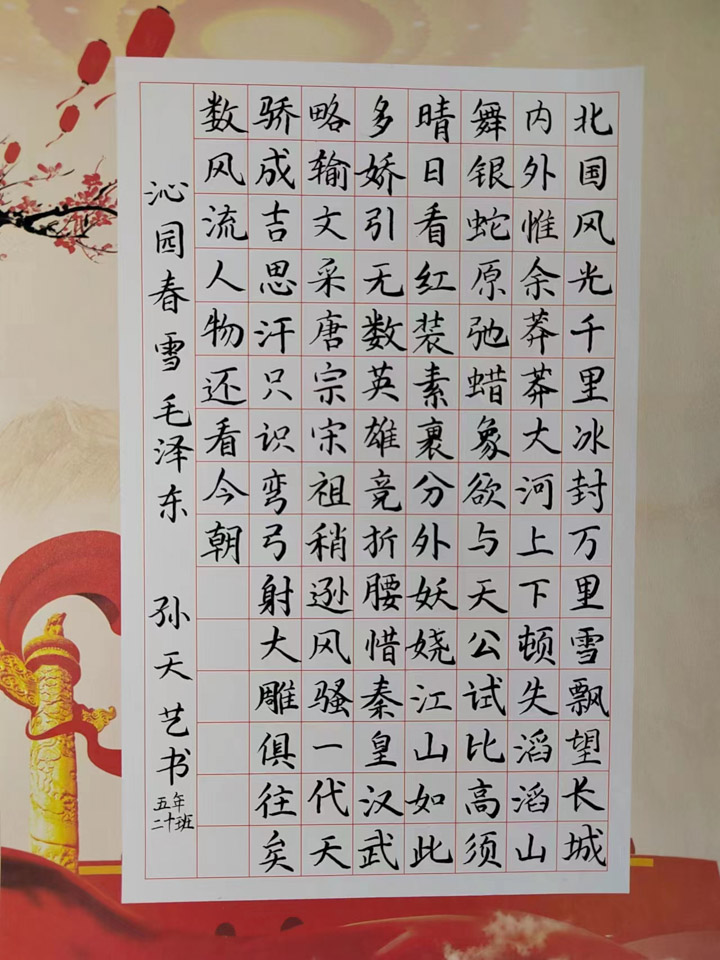 北国风光千里冰封万里雪飘望长城
内外惟余莽莽大河上下顿失滔滔山
舞银蛇原弛蜡象欲与天公试比高须
晴日看红装素裹分外妖娆江山如此
多娇引无数英雄竞折腰惜秦皇汉武
略输文采唐宗宋祖稍逊风骚一代天
骄成吉思汗只识弯弓射大雕俱往矣
数风流人物还看今朝
沁园春雪 毛泽东 孙天艺书
五年
二十班